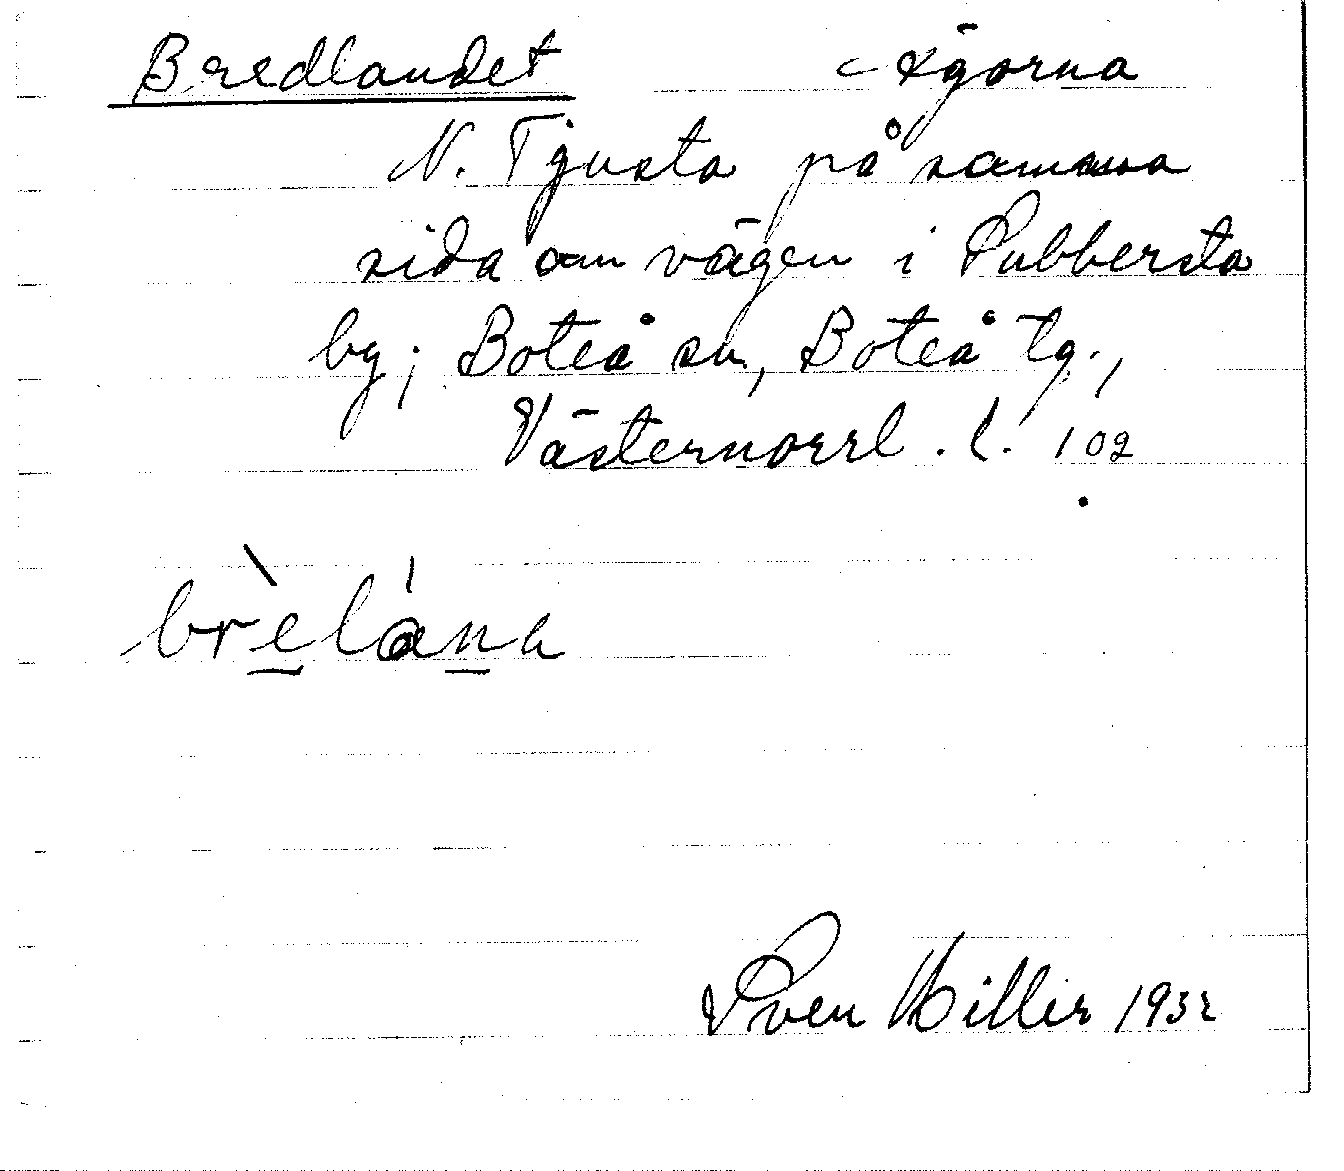 Bredlandet Ägorna
N. Tjusta på samma
sida om vägen i Subbersta
by; Boteå sn, Boteå tg.,
Västernorrl. l. 102
brèlána
Sven Millir 1932